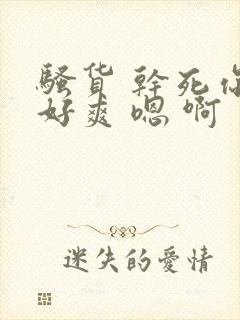 騷货 幹死你
好爽 嗯 啊
迷失的愛情